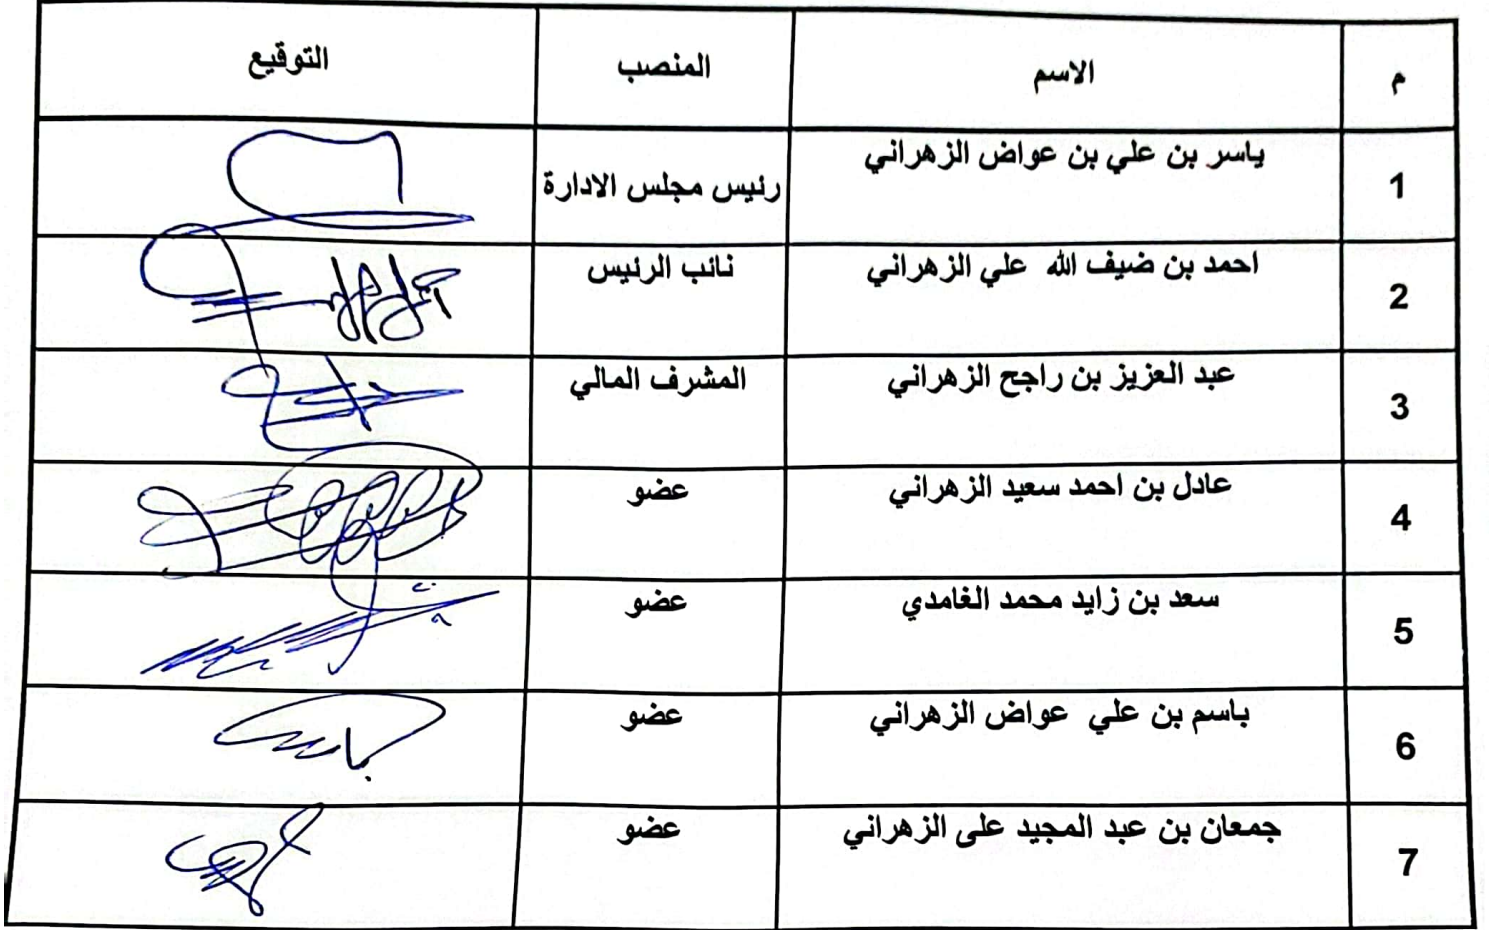 م الاسم المنصب التوقيع
1 ياسر بن علي بن عواض الزهراني رئيس مجلس الادارة
2 احمد بن ضيف الله علي الزهراني نائب الرئيس
3 عبد العزيز بن راجح الزهراني المشرف المالي
4 عادل بن احمد سعيد الزهراني عضو
5 سعد بن زايد محمد الغامدي عضو
6 باسم بن علي عواض الزهراني عضو
7 جمعان بن عبد المجيد على الزهراني عضو